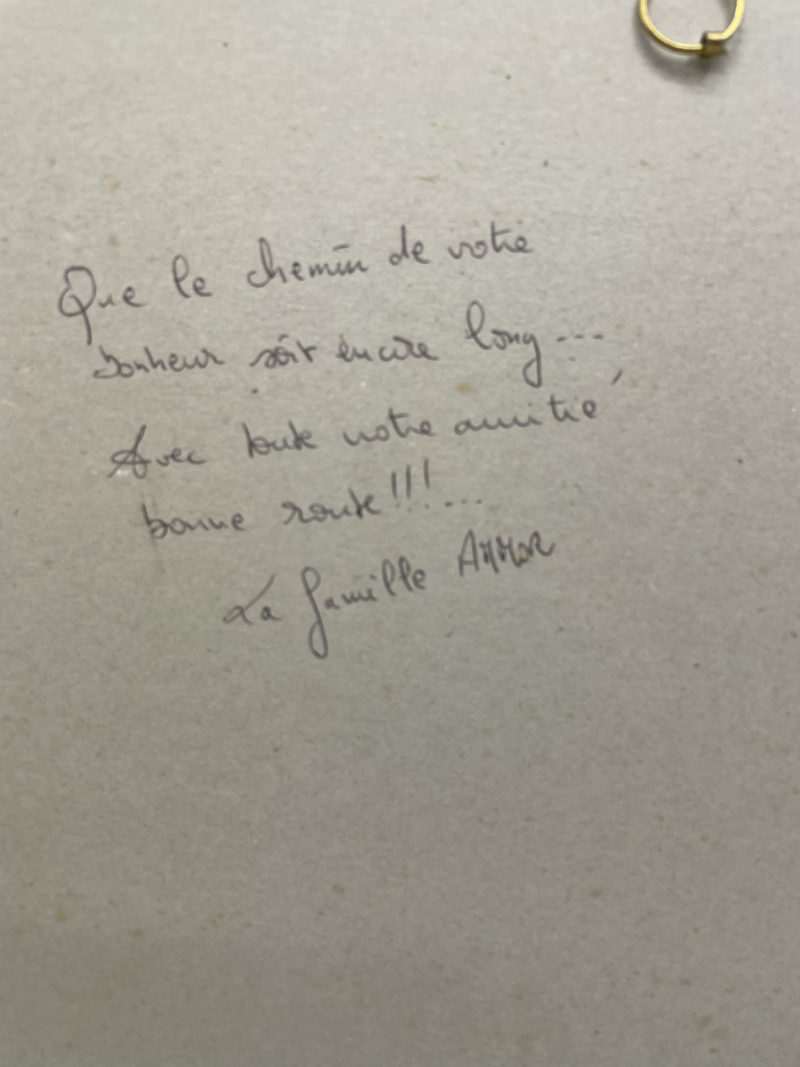 Que le chemin de votre
bonheur soit encore long...
Avec toute notre amitié
bonne route!!!...
La famille